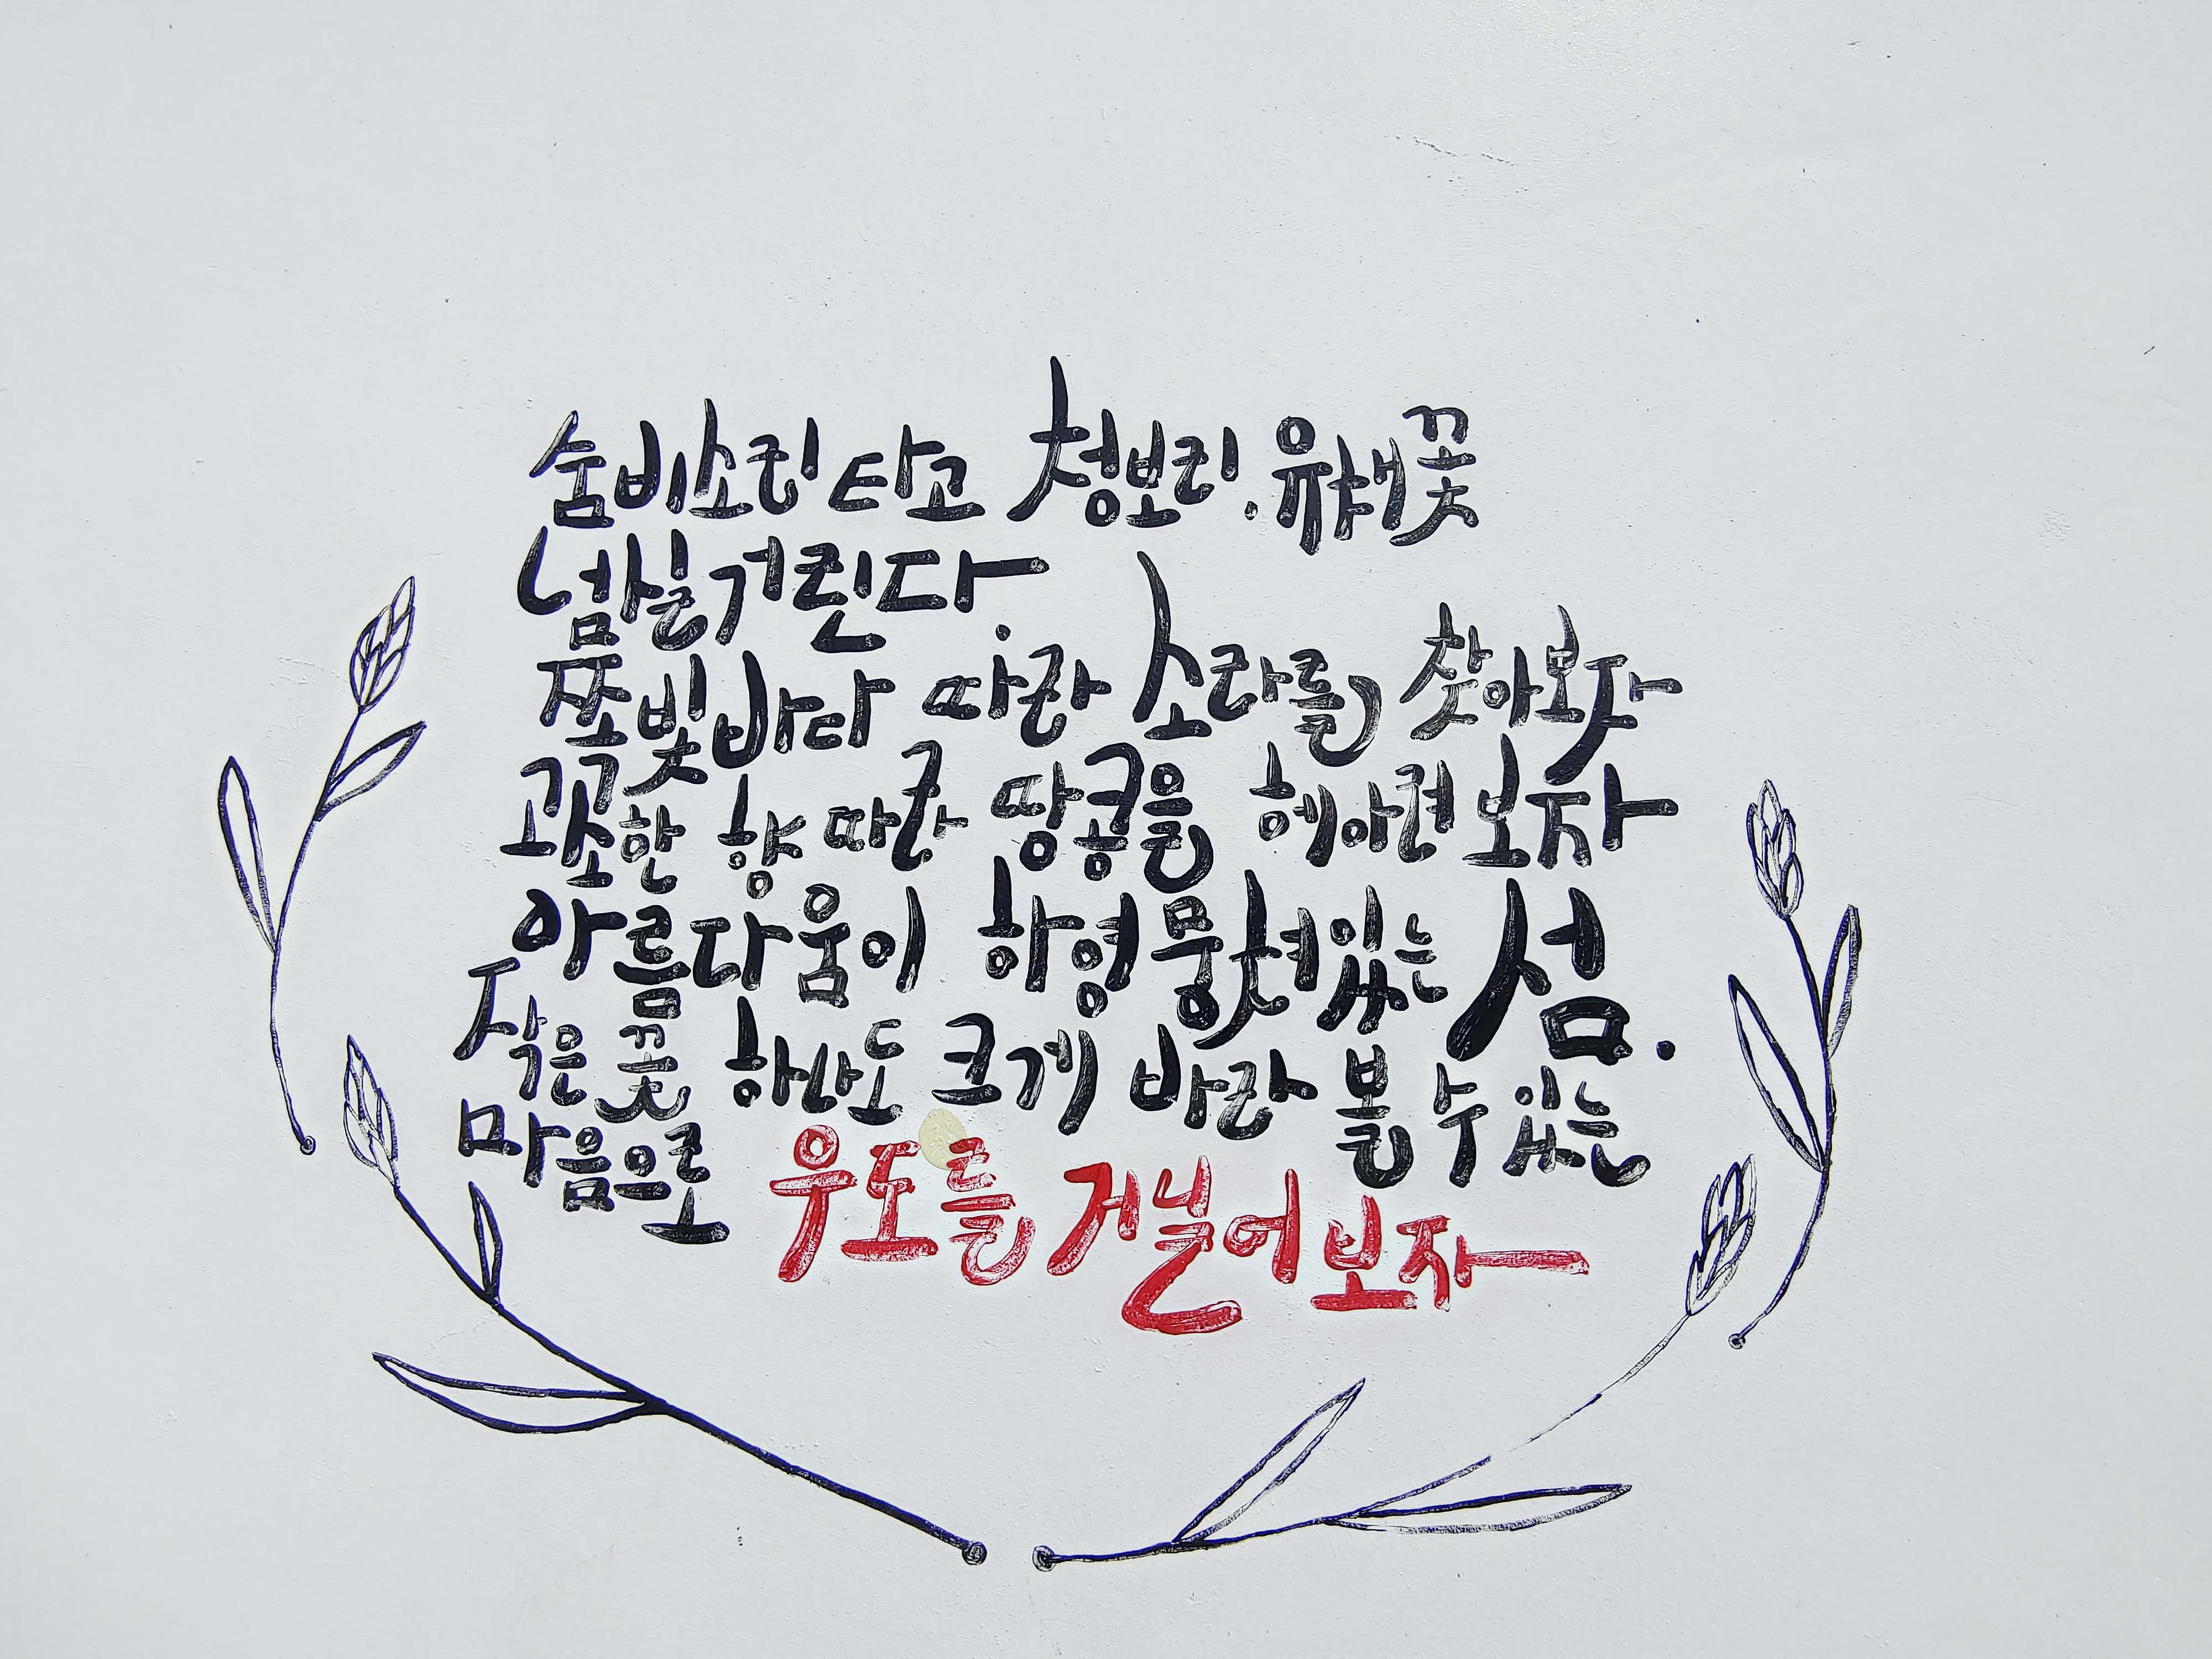 숨비소리 타고 청보리.유채꽃
넘실거린다.
쪽빛바다 따라 소라를 찾아보자
고소한 향 따라 땅콩을 헤아려보자
아름다움이 하영 뭉쳐있는 섬.
작은 꽃 하나도 크게 바라 볼 수 있는
마음으로 우도를 거닐어 보자